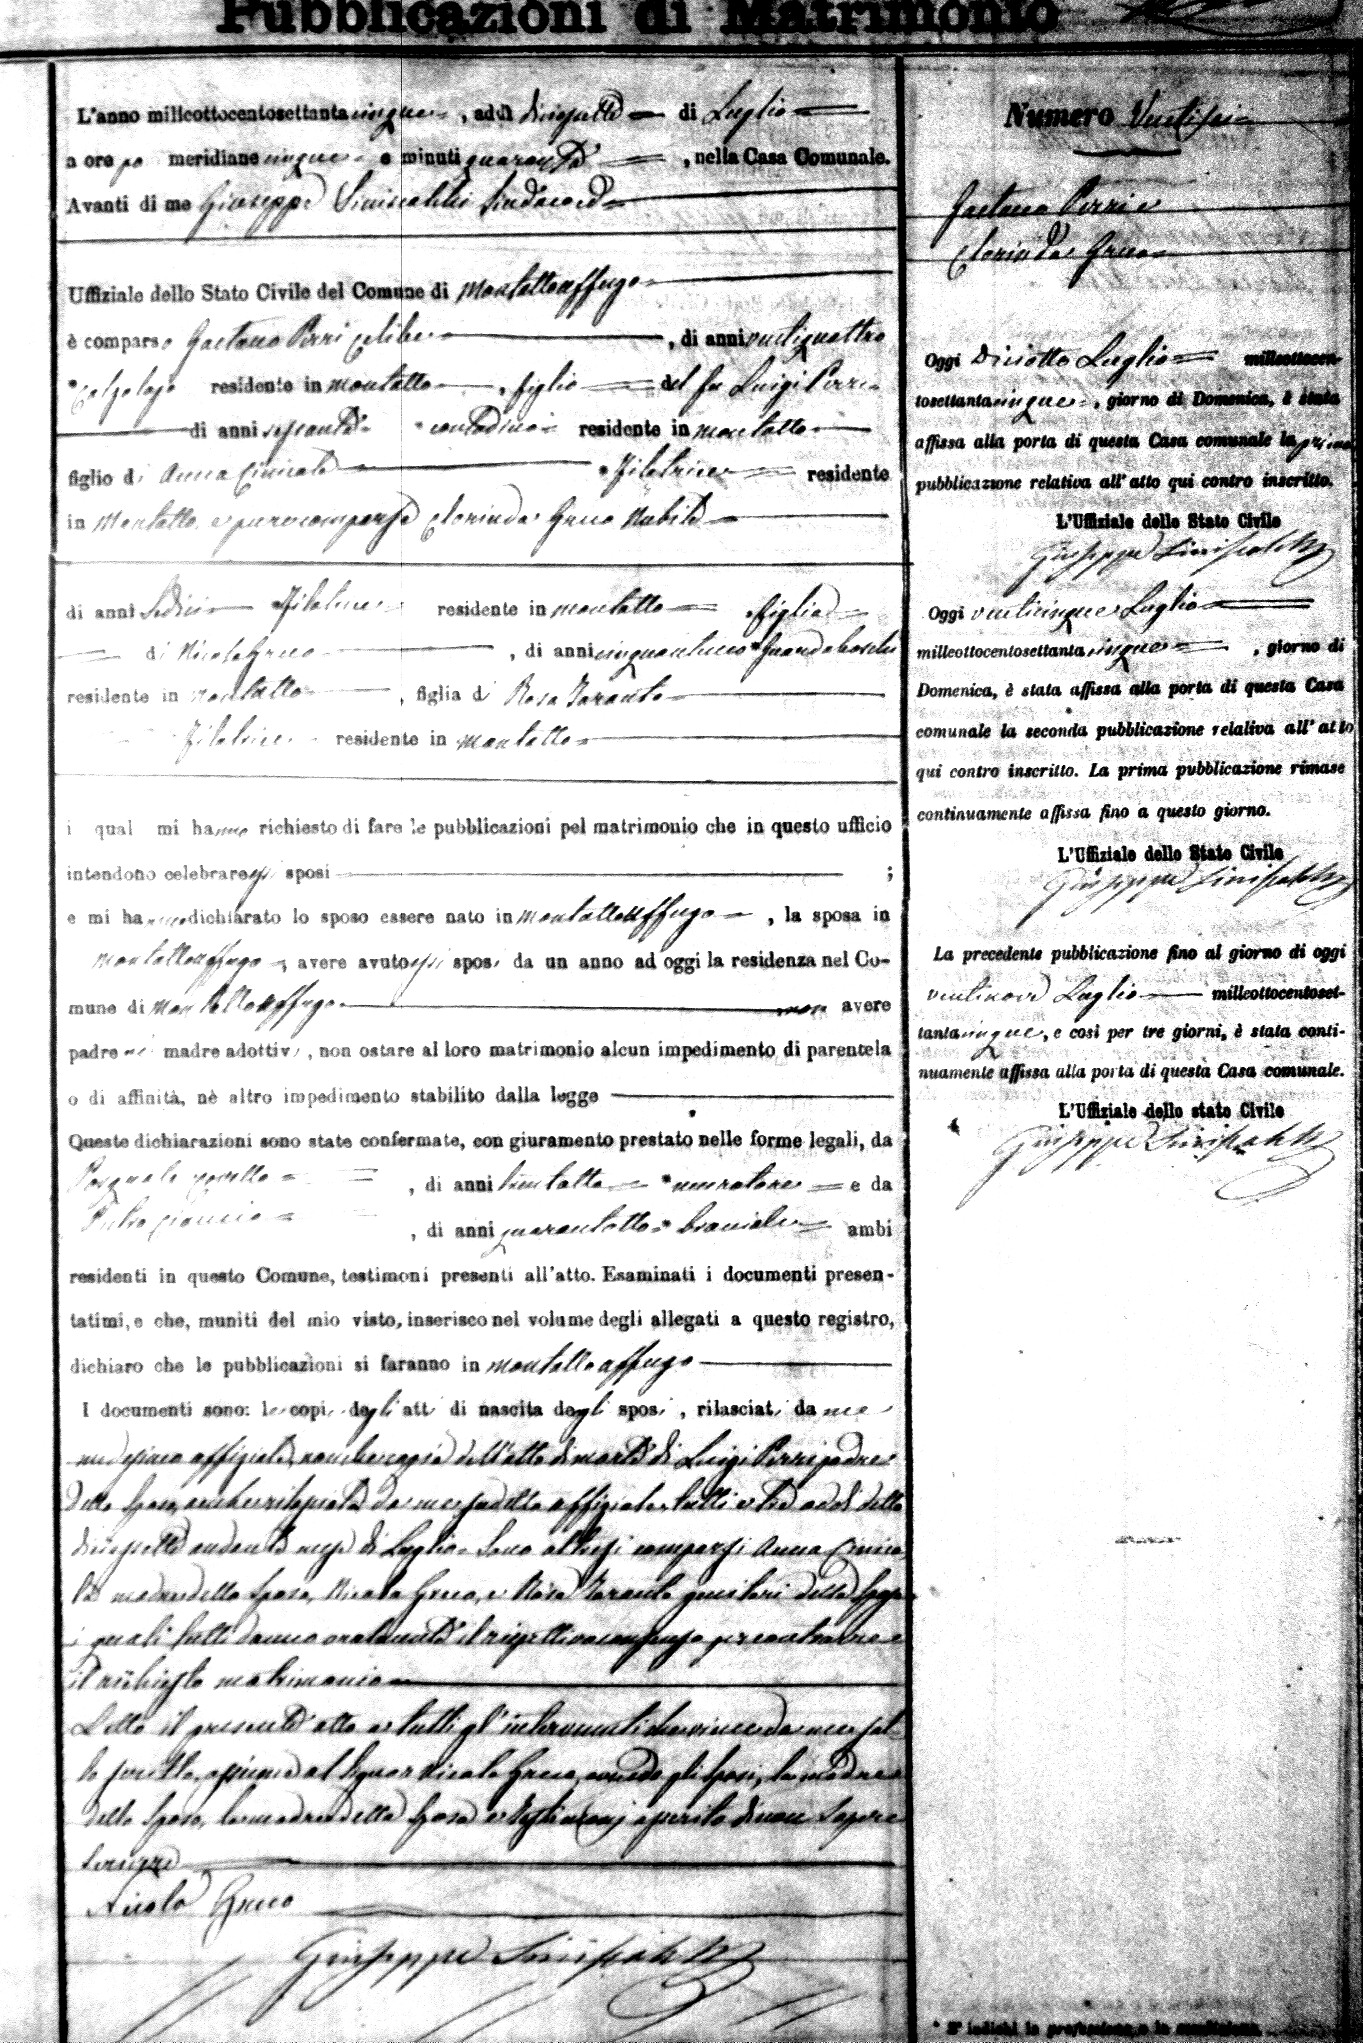 Pubblicazioni di Matrimonio
L'anno milleottocentosettantacinque, addì diciasette di Luglio
a ore po meridiane cinque e minuti quaranta, nella Casa Comunale.
Avanti di me Giuseppe Siniscalchi Sindaco
Uffiziale dello Stato Civile del Comune di Montaltouffugo
è comparso Gaetano Perri celibe, di anni ventiquattro
*Calzolajo residente in Montalto, figlio del fu Luigi Perri
di anni sessanta *contadino residente in Montalto
figlio di Anna *Filatrice residente
in Montalto, e pure comparsa Clorinda Greco Nubile
di anni Sedici Filatrice residente in Montalto figlia
di Nicola Greco, di anni *Guardaboschi
residente in Montalto, figlia di Rosa Taranto
Filatrice residente in Montalto
i qual mi hanno richiesto di fare le pubblicazioni pel matrimonio che in questo ufficio
intendono celebrare essi sposi ;
e mi hanno dichiarato lo sposo essere nato in Montaltouffugo, la sposa in
Montaltouffugo, avere avuto essi sposi da un anno ad oggi la residenza nel Co-
mune di Montaltouffugo non avere
padre nè madre adottivi, non ostare al loro matrimonio alcun impedimento di parentela
o di affinità, nè altro impedimento stabilito dalla legge
Queste dichiarazioni sono state confermate, con giuramento prestato nelle forme legali, da
Pasquale, di anni trentotto *muratore e da
Pietro, di anni quarantotto *bracciale ambi
residenti in questo Comune, testimoni presenti all'atto. Esaminati i documenti presen-
tatimi, e che, muniti del mio visto, inserisco nel volume degli allegati a questo registro,
dichiaro che le pubblicazioni si faranno in Montaltouffugo
I documenti sono: le copie degli atti di nascita degli sposi, rilasciati da me
medesimo uffiziale, nonche copia dell'atto di morte di Luigi Perri padre
dello Sposo, anche rilasciata da me sudetto uffiziale, tutti e tre addì detto
diciassette andante mese di Luglio. Sono altresì comparsi Anna
madre dello Sposo, Nicola Greco, e Rosa Taranto genitori della Sposa
i quali tutti danno oralmente il rispettivo consenso per contrarre
il richiesto matrimonio
Letto il presente atto a tutti gl'intervenuti da me
al Signor Nicola Greco, gli Sposi, la madre
dello Sposo, la madre della Sposa e Testimonj asserito di non Sapere
Scrivere
Nicola Greco
Giuseppe Siniscalchi
Numero Ventisei
Gaetano Perri e
Clorinda Greco
Oggi Diciotto Luglio milleottocen-
tosettantacinque, giorno di Domenica, è stata
affissa alla porta di questa Casa comunale la prima
pubblicazione relativa all'atto qui contro inscritto.
L'Uffiziale dello Stato Civile
Giuseppe Siniscalchi
Oggi venticinque Luglio
milleottocentosettantacinque, giorno di
Domenica, è stata affissa alla porta di questa Casa
comunale la seconda pubblicazione relativa all'atto
qui contro inscritto. La prima pubblicazione rimase
continuamente affissa fino a questo giorno.
L'Uffiziale dello Stato Civile
Giuseppe Siniscalchi
La precedente pubblicazione fino al giorno di oggi
ventinove Luglio milleottocentoset-
tantacinque, e così per tre giorni, è stata conti-
nuamente affissa alla porta di questa Casa comunale.
L'Uffiziale dello stato Civile
Giuseppe Siniscalchi
* S'indichi la professione o la condizione